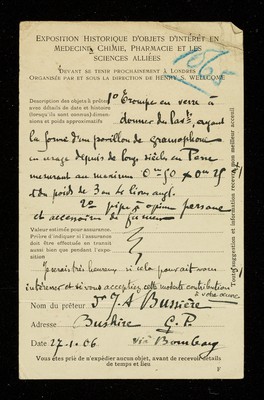 EXPOSITION HISTORIQUE D'OBJETS D'INTÉRÊT EN
MEDECINE, CHIMIE, PHARMACIE ET LES
SCIENCES ALLIÉES.
DEVANT SE TENIR PROCHAINEMENT À LONDRES
ORGANISÉE PAR ET SOUS LA DIRECTION DE HENRY S. WELLCOME
Description des objets à prêter
avec détails de date et histoire
(lorsqu'ils sont connus) dimen-
sions et poids approximatifs
1º Trompe en verre à
donner du lavt, ayant
la forme d'un pavillon de gramophone
en usage depuis de longs siècles en Perse
mesurant au maximum 0m50 x 0m25
et du poids de 3 ou 4 livres angl.
2º pipe à opium persane
et accessoires de fumeur
Valeur estimée pour assurance.
Prière d'indiquer si l'assurance
doit être effectuée en transit
aussi bien que pendant l'expo-
sition
Je serais très heureux si cela pouvait vous
intéresser et si vous acceptiez cette modeste contribution
à votre œuvre
Nom du prêteur Dr J. A Bussière
Adresse Bushire G. P.
Date 27-1-06 via Bombay
Vous êtes prié de n'expédier aucun objet, avant de recevoir détails
de temps et lieu
Toute suggestion et information recevra mon meilleur accueil